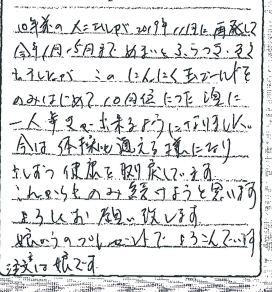 10年前の人でしたが2017年11月に再発して
今年1月〜5月まで めまいとふらつき
ましたが このにんにく
のみはじめて10日位たった頃に
一人歩きが出来るようになりました。
今は体操に通える様になり
少しずつ健康を取り戻しています
これからものみ続けようと思います
よろしくお願い致します
娘からのプレゼントで よろこんでいます
注文は娘です